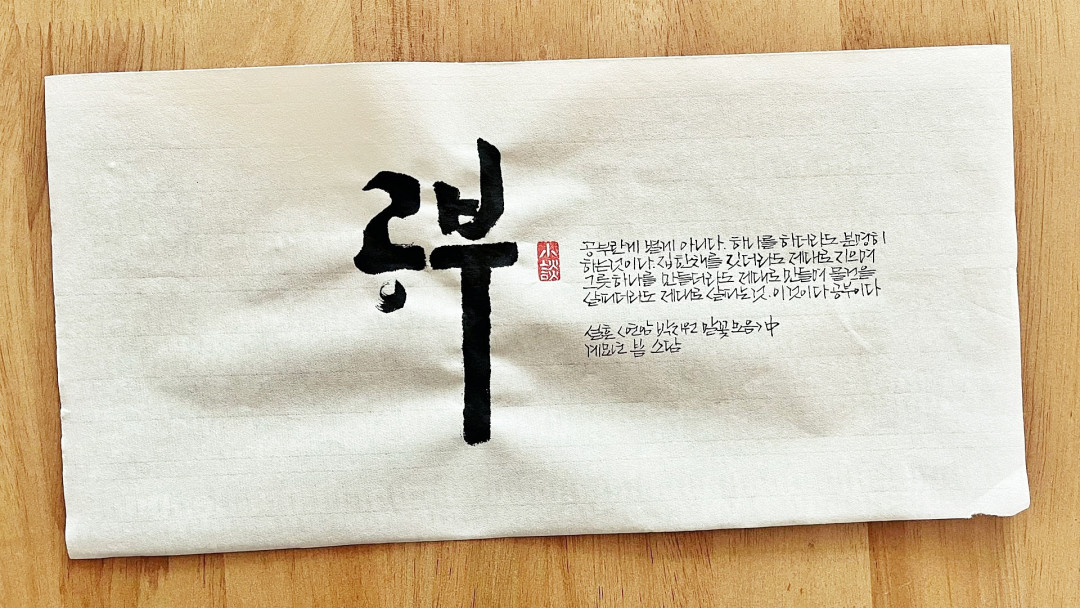 공부
小談
공부란게 별게 아니다. 하나를 하더라도 분명히
하는것이다. 집한채를 짓더라도 제대로 지으며
그릇하나를 만들더라도 제대로 만들며 물건을
살피더라도 제대로 살피는것. 이것이 다 공부이다
설흔 <연암 박지원 말꽃모음> 中
계묘년 봄 소담